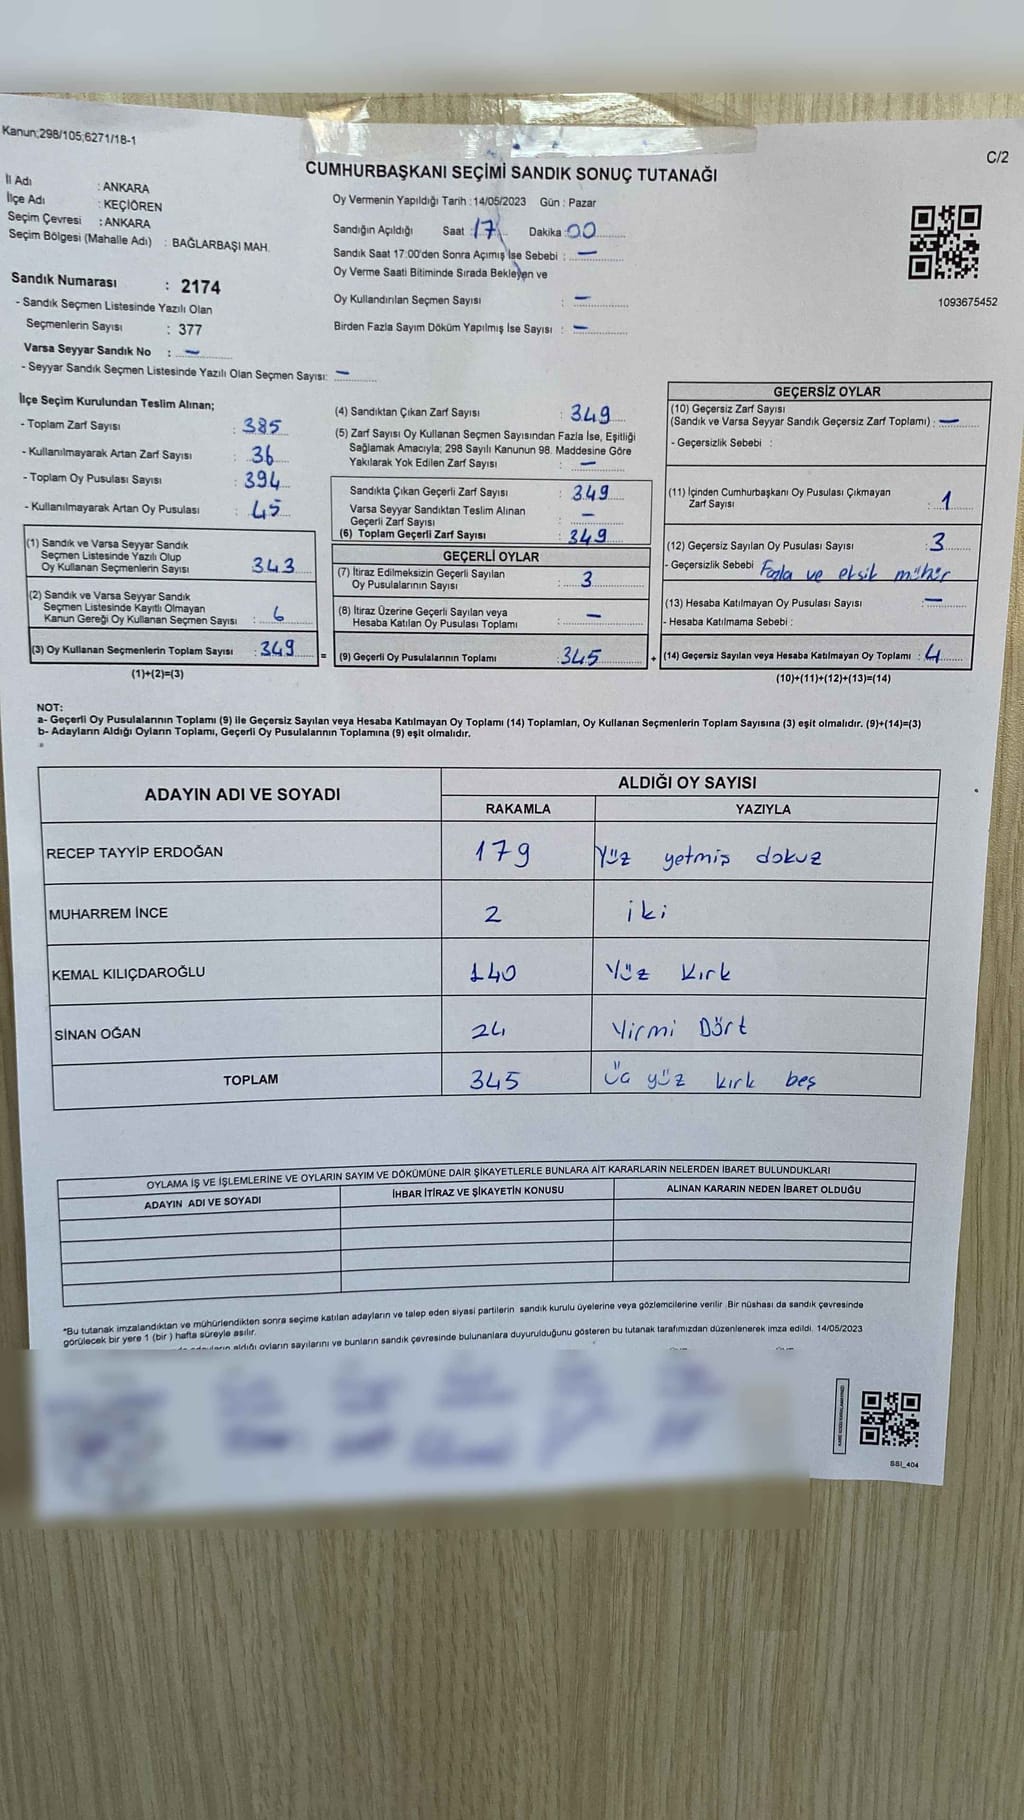 Kanun;298/105;6271/18-1
C/2
CUMHURBAŞKANI SEÇİMİ SANDIK SONUÇ TUTANAĞI
İl Adı : ANKARA
İlçe Adı : KEÇİÖREN
Seçim Çevresi : ANKARA
Seçim Bölgesi (Mahalle Adı) : BAĞLARBAŞI MAH.
Oy Vermenin Yapıldığı Tarih : 14/05/2023 Gün : Pazar
Sandığın Açıldığı Saat : 17 Dakika : 00
Sandık Saat 17:00'den Sonra Açımış İse Sebebi : –
Oy Verme Saati Bitiminde Sırada Bekleyen ve
Oy Kullandırılan Seçmen Sayısı : –
Birden Fazla Sayım Döküm Yapılmış İse Sayısı : –
1093675452
Sandık Numarası : 2174
- Sandık Seçmen Listesinde Yazılı Olan
Seçmenlerin Sayısı : 377
Varsa Seyyar Sandık No : –
- Seyyar Sandık Seçmen Listesinde Yazılı Olan Seçmen Sayısı: –
İlçe Seçim Kurulundan Teslim Alınan;
- Toplam Zarf Sayısı : 385
- Kullanılmayarak Artan Zarf Sayısı : 36
- Toplam Oy Pusulası Sayısı : 394
- Kullanılmayarak Artan Oy Pusulası : 45
(1) Sandık ve Varsa Seyyar Sandık
Seçmen Listesinde Yazılı Olup
Oy Kullanan Seçmenlerin Sayısı : 343
(2) Sandık ve Varsa Seyyar Sandık
Seçmen Listesinde Kayıtlı Olmayan
Kanun Gereği Oy Kullanan Seçmen Sayısı : 6
(3) Oy Kullanan Seçmenlerin Toplam Sayısı : 349 =
(1)+(2)=(3)
(4) Sandıktan Çıkan Zarf Sayısı : 349
(5) Zarf Sayısı Oy Kullanan Seçmen Sayısından Fazla İse, Eşitliği
Sağlamak Amacıyla; 298 Sayılı Kanunun 98. Maddesine Göre
Yakılarak Yok Edilen Zarf Sayısı : –
Sandıkta Çıkan Geçerli Zarf Sayısı : 349
Varsa Seyyar Sandıktan Teslim Alınan
Geçerli Zarf Sayısı : –
(6) Toplam Geçerli Zarf Sayısı : 349
GEÇERLİ OYLAR
(7) İtiraz Edilmeksizin Geçerli Sayılan
Oy Pusulalarının Sayısı : 3
(8) İtiraz Üzerine Geçerli Sayılan veya
Hesaba Katılan Oy Pusulası Toplamı : –
(9) Geçerli Oy Pusulalarının Toplamı : 345 +
GEÇERSİZ OYLAR
(10) Geçersiz Zarf Sayısı
(Sandık ve Varsa Seyyar Sandık Geçersiz Zarf Toplamı) : –
- Geçersizlik Sebebi :
(11) İçinden Cumhurbaşkanı Oy Pusulası Çıkmayan
Zarf Sayısı : 1
(12) Geçersiz Sayılan Oy Pusulası Sayısı : 3
- Geçersizlik Sebebi Fazla ve eksik mühür
(13) Hesaba Katılmayan Oy Pusulası Sayısı : –
- Hesaba Katılmama Sebebi :
(14) Geçersiz Sayılan veya Hesaba Katılmayan Oy Toplamı : 4
(10)+(11)+(12)+(13)=(14)
NOT:
a- Geçerli Oy Pusulalarının Toplamı (9) ile Geçersiz Sayılan veya Hesaba Katılmayan Oy Toplamı (14) Toplamları, Oy Kullanan Seçmenlerin Toplam Sayısına (3) eşit olmalıdır. (9)+(14)=(3)
b- Adayların Aldığı Oyların Toplamı, Geçerli Oy Pusulalarının Toplamına (9) eşit olmalıdır.
ADAYIN ADI VE SOYADI
ALDIĞI OY SAYISI
RAKAMLA YAZIYLA
RECEP TAYYİP ERDOĞAN 179 Yüz yetmiş dokuz
MUHARREM İNCE 2 iki
KEMAL KILIÇDAROĞLU 140 Yüz kırk
SİNAN OĞAN 24 Yirmi Dört
TOPLAM 345 Üç yüz kırk beş
OYLAMA İŞ VE İŞLEMLERİNE VE OYLARIN SAYIM VE DÖKÜMÜNE DAİR ŞİKAYETLERLE BUNLARA AİT KARARLARIN NELERDEN İBARET BULUNDUKLARI
ADAYIN ADI VE SOYADI İHBAR İTİRAZ VE ŞİKAYETİN KONUSU ALINAN KARARIN NEDEN İBARET OLDUĞU
*Bu tutanak imzalandıktan ve mühürlendikten sonra seçime katılan adayların ve talep eden siyasi partilerin sandık kurulu üyelerine veya gözlemcilerine verilir. Bir nüshası da sandık çevresinde
görülecek bir yere 1 (bir ) hafta süreyle asılır.
aldığı oyların sayılarını ve bunların sandık çevresinde bulunanlara duyurulduğunu gösteren bu tutanak tarafımızdan düzenlenerek imza edildi. 14/05/2023
SSI_404